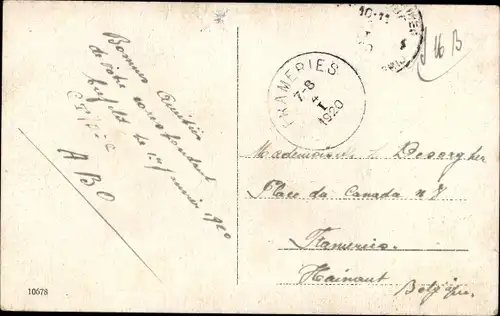 Bonnes Amitiés
de votre correspondant
le 1er janvier 1920
A B O
10578
FRAMERIES
7-8
4 I
1920
10-11
J 16 B
Mademoiselle L. Desorgher
Place du Canada n 7
Frameries.
Hainaut
Belgique.